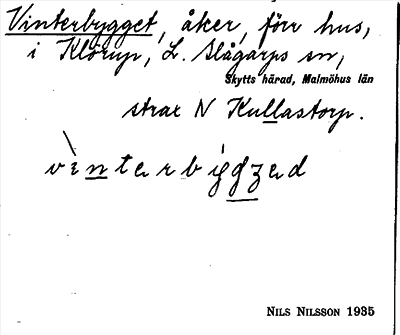 Vinterbygget, åker, förr hus,
i Klörup, L. Slågarps sn,
Skytts härad, Malmöhus län
strax N Kullastorp.
vìnterbiggzad
NILS NILSSON 1935